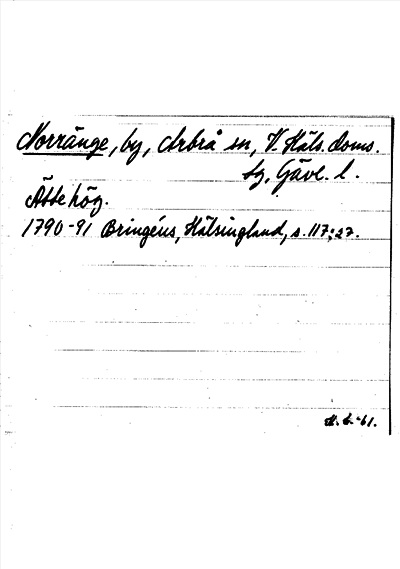 Norränge, by, Arbrå sn, V. Häls. doms.
sg, Gävl. l.
Ättehög.
1790-91 Bringéus, Hälsingland, s. 117; 27.
H. G. -61.